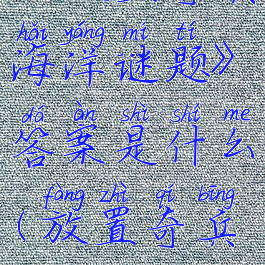 hǎi yáng mí tí
海洋谜题》
dá àn shì shí me
答案是什么
fàng zhì qí bīng
(放置奇兵